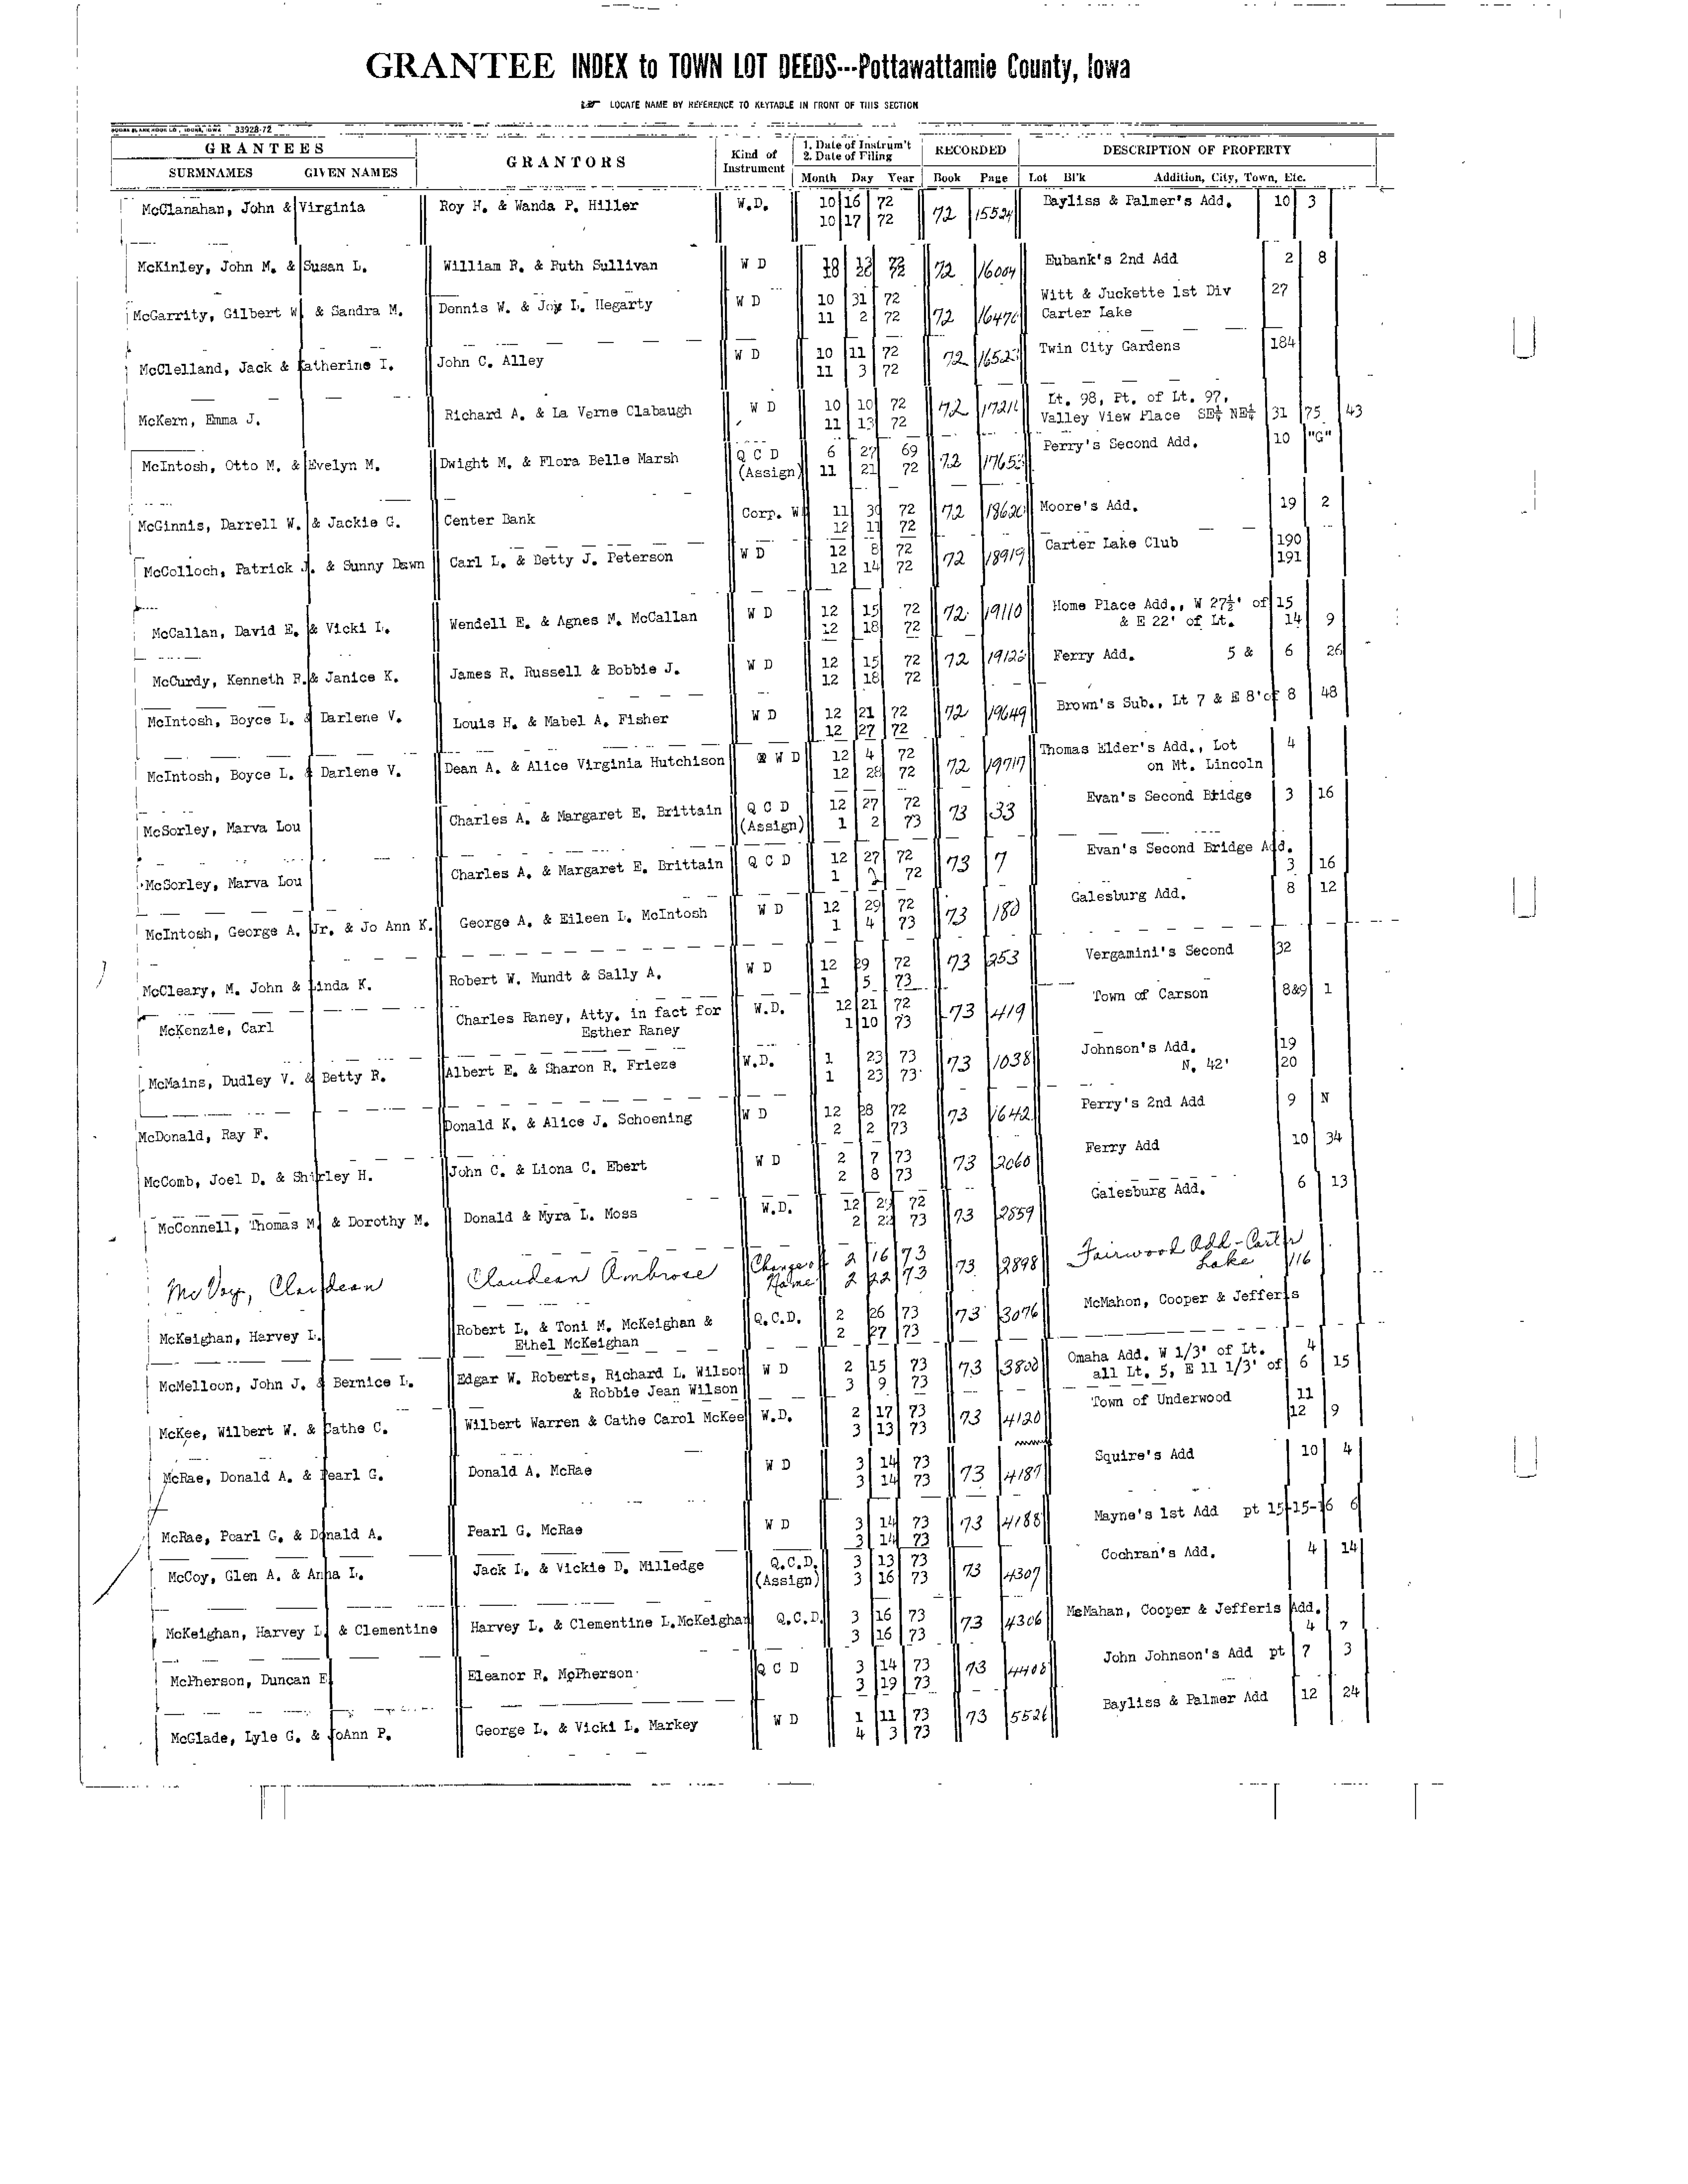 GRANTEE INDEX to TOWN LOT DEEDS---Pottawattamie County, Iowa
LOCATE NAME BY REFERENCE TO KEYTABLE IN FRONT OF THIS SECTION
33928-72
GRANTEES GRANTORS Kind of Instrument 1. Date of Instrum't 2. Date of Filing RECORDED DESCRIPTION OF PROPERTY
SURMNAMES GIVEN NAMES Month Day Year Book Page Lot Bl'k Addition, City, Town, Etc.
McClanahan, John & Virginia Roy H. & Wanda P. Hiller W.D. 10 16 72 72 15524 Bayliss & Palmer's Add. 10 3
10 17 72
McKinley, John M. & Susan L. William R. & Ruth Sullivan W D 72 16004 Eubank's 2nd Add 2 8
McGarrity, Gilbert W. & Sandra M. Dennis W. & Joy L. Hegarty W D 10 31 72 72 16476 Witt & Juckette 1st Div 27
11 2 72 Carter Lake
McClelland, Jack & Katherine I. John C. Alley W D 10 11 72 72 1652 Twin City Gardens 184
11 3 72
McKern, Emma J. Richard A. & La Verne Clabaugh W D 10 10 72 72 1721 Lt. 98, Pt. of Lt. 97,
11 13 72 Valley View Place SE¼ NE¼ 31 75 43
McIntosh, Otto M. & Evelyn M. Dwight M. & Flora Belle Marsh Q C D 6 27 69 72 1765 Perry's Second Add. 10 "G"
(Assign) 11 21 72
McGinnis, Darrell W. & Jackie G. Center Bank Corp. W 11 30 72 72 18620 Moore's Add. 19 2
12 11 72
McColloch, Patrick J. & Sunny Dawn Carl L. & Betty J. Peterson W D 12 8 72 72 18919 Carter Lake Club 190
12 14 72 191
McCallan, David E. & Vicki L. Wendell E. & Agnes M. McCallan W D 12 15 72 72 19110 Home Place Add., W 27½' of 15
12 18 72 & E 22' of Lt. 14 9
McCurdy, Kenneth R. & Janice K. James R. Russell & Bobbie J. W D 12 15 72 72 1912 Ferry Add. 5 & 6 26
12 18 72
McIntosh, Boyce L. & Darlene V. Louis H. & Mabel A. Fisher W D 12 21 72 72 19649 Brown's Sub., Lt 7 & E 8' of 8 48
12 27 72
McIntosh, Boyce L. & Darlene V. Dean A. & Alice Virginia Hutchison W D 12 4 72 72 19717 Thomas Elder's Add., Lot 4
12 28 72 on Mt. Lincoln
McSorley, Marva Lou Charles A. & Margaret E. Brittain Q C D 12 27 72 73 33 Evan's Second Bridge 3 16
(Assign) 1 2 73
McSorley, Marva Lou Charles A. & Margaret E. Brittain Q C D 12 27 72 73 7 Evan's Second Bridge Add.
1 2 72 3 16
McIntosh, George A. Jr. & Jo Ann K. George A. & Eileen L. McIntosh W D 12 29 72 73 180 Galesburg Add. 8 12
1 4 73
McCleary, M. John & Linda K. Robert W. Mundt & Sally A. W D 12 29 72 73 253 Vergamini's Second 32
1 5 73
McKenzie, Carl Charles Raney, Atty. in fact for W.D. 12 21 72 73 419 Town of Carson 8&9 1
Esther Raney 1 10 73
McMains, Dudley V. & Betty R. Albert E. & Sharon R. Frieze W.D. 1 23 73 73 1038 Johnson's Add. 19
1 23 73 N. 42' 20
McDonald, Ray F. Donald K. & Alice J. Schoening W D 12 28 72 73 1642 Perry's 2nd Add 9 N
2 2 73
McComb, Joel D. & Shirley H. John C. & Liona C. Ebert W D 2 7 73 73 2060 Ferry Add 10 34
2 8 73
McConnell, Thomas M. & Dorothy M. Donald & Myra L. Moss W.D. 12 29 72 73 2859 Galesburg Add. 6 13
2 22 73
McVay, Claudean Claudean Ambrose Change of 2 16 73 73 2898 Fairwood Add - Carter
Name 2 22 73 Lake 116
McKeighan, Harvey L. Robert L. & Toni M. McKeighan & Q.C.D. 2 26 73 73 3076 McMahon, Cooper & Jefferis
Ethel McKeighan 2 27 73
McMelloon, John J. & Bernice L. Edgar W. Roberts, Richard L. Wilson W D 2 15 73 73 3800 Omaha Add. W 1/3' of Lt. 4
& Robbie Jean Wilson 3 9 73 all Lt. 5, E 11 1/3' of 6 15
McKee, Wilbert W. & Cathe C. Wilbert Warren & Cathe Carol McKee W.D. 2 17 73 73 4120 Town of Underwood 11
3 13 73 12 9
McRae, Donald A. & Pearl G. Donald A. McRae W D 3 14 73 73 4187 Squire's Add 10 4
3 14 73
McRae, Pearl G. & Donald A. Pearl G. McRae W D 3 14 73 73 4188 Mayne's 1st Add pt 15-15-16 6
3 14 73
McCoy, Glen A. & Anna L. Jack L. & Vickie D. Milledge Q.C.D. 3 13 73 73 4307 Cochran's Add. 4 14
(Assign) 3 16 73
McKeighan, Harvey L. & Clementine Harvey L. & Clementine L. McKeighan Q.C.D. 3 16 73 73 4306 McMahan, Cooper & Jefferis Add.
3 16 73 4 7
McPherson, Duncan E. Eleanor R. McPherson Q C D 3 14 73 73 4408 John Johnson's Add pt 7 3
3 19 73
McGlade, Lyle G. & JoAnn P. George L. & Vicki L. Markey W D 1 11 73 73 5526 Bayliss & Palmer Add 12 24
4 3 73